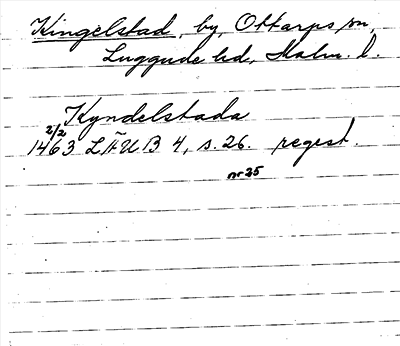 Kingelstad, by, Ottarps sn,
Luggude hd, Malm. l.
Kyndelstada
2/2
1463 LÄUB 4, s. 26. regest.
nr 25